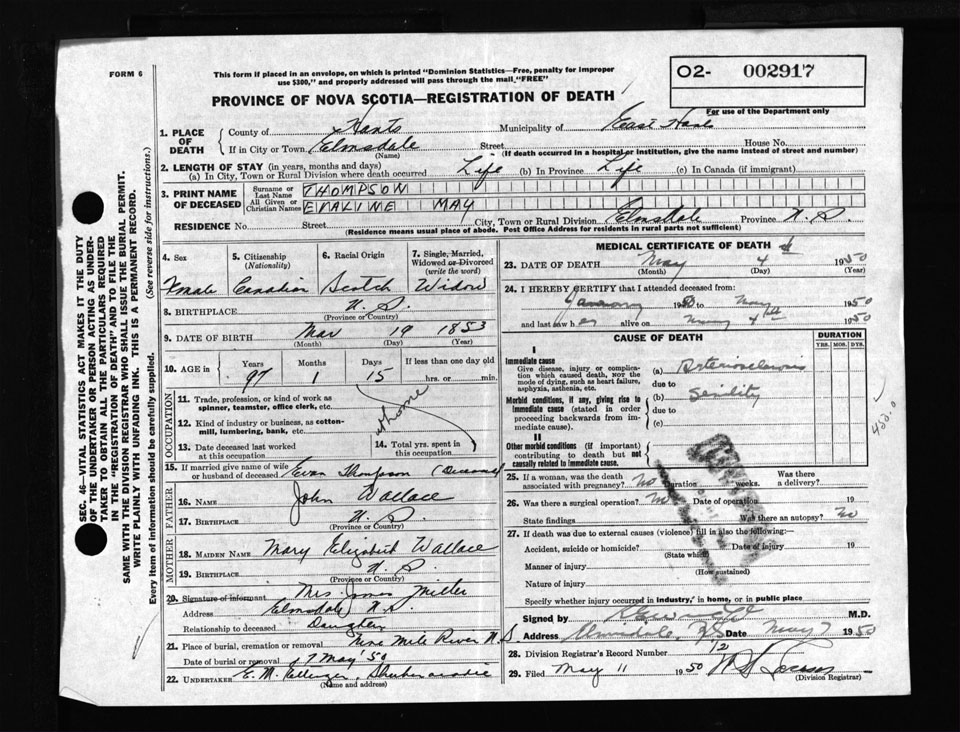 FORM 6
This form if placed in an envelope, on which is printed "Dominion Statistics—Free, penalty for improper
use $300," and properly addressed will pass through the mail "FREE"
O2- 002917
For use of the Department only
PROVINCE OF NOVA SCOTIA—REGISTRATION OF DEATH
1. PLACE OF DEATH
County of Hants Municipality of East Hants
If in City or Town Elmsdale Street House No.
(Name) (If death occurred in a hospital or institution, give the name instead of street and number)
2. LENGTH OF STAY (in years, months and days)
(a) In City, Town or Rural Division where death occurred Life (b) In Province Life (c) In Canada (if immigrant)
3. PRINT NAME OF DECEASED
Surname or Last Name THOMPSON
All Given or Christian Names EVALINE MAY
RESIDENCE No. Street City, Town or Rural Division Elmsdale Province N.S.
(Residence means usual place of abode. Post Office Address for residents in rural parts not sufficient)
4. Sex 5. Citizenship (Nationality) 6. Racial Origin 7. Single, Married, Widowed or Divorced (write the word)
Female Canadian Scotch Widow
8. BIRTHPLACE N.S.
(Province or Country)
9. DATE OF BIRTH Mar 19 1853
(Month) (Day) (Year)
10. AGE in Years Months Days If less than one day old
97 1 15 hrs. or min.
OCCUPATION
11. Trade, profession, or kind of work as
spinner, teamster, office clerk, etc.
At home
12. Kind of industry or business, as cotton-
mill, lumbering, bank, etc.
13. Date deceased last worked
at this occupation
14. Total yrs. spent in
this occupation
15. If married give name of wife
or husband of deceased Evan Thompson (Deceased)
FATHER
16. NAME John Wallace
17. BIRTHPLACE N.S.
(Province or Country)
MOTHER
18. MAIDEN NAME Mary Elizabeth Wallace
19. BIRTHPLACE N.S.
(Province or Country)
20. Signature of informant Mrs. Miller
Address Elmsdale N.S.
Relationship to deceased Daughter
21. Place of burial, cremation or removal Nine Mile River N.S
Date of burial or removal 7 May '50
22. UNDERTAKER E. M. Shubenacadie
(Name and address)
MEDICAL CERTIFICATE OF DEATH
23. DATE OF DEATH May 4 1950
(Month) (Day) (Year)
24. I HEREBY CERTIFY that I attended deceased from:
January to May 1950
and last saw her alive on May 4th 1950
CAUSE OF DEATH DURATION
YRS. MOS. DYS.
I
Immediate cause
Give disease, injury or complica-
tion which caused death, NOT the
mode of dying, such as heart failure,
asphyxia, asthenia, etc.
(a) Arteriosclerosis
due to
Morbid conditions, if any, giving rise to
immediate cause (stated in order
proceeding backwards from im-
mediate cause).
(b) Senility
due to
(c)
II
Other morbid conditions (if important)
contributing to death but not
causally related to immediate cause.
450.0
25. If a woman, was the death
associated with pregnancy? No Duration weeks. Was there
a delivery?
26. Was there a surgical operation? No Date of operation 19
State findings Was there an autopsy? No
27. If death was due to external causes (violence) fill in also the following:
Accident, suicide or homicide? Date of injury 19
(State which)
Manner of injury
(How sustained)
Nature of injury
Specify whether injury occurred in industry, in home, or in public place
Signed by M.D.
Address N.S Date May 7 1950
28. Division Registrar's Record Number 1/2
29. Filed May 11 1950
(Division Registrar)
SEC. 46—VITAL STATISTICS ACT MAKES IT THE DUTY
OF THE UNDERTAKER OR PERSON ACTING AS UNDER-
TAKER TO OBTAIN ALL THE PARTICULARS REQUIRED
IN THE "REGISTRATION OF DEATH" AND TO FILE THE
SAME WITH THE DIVISION REGISTRAR WHO SHALL ISSUE THE BURIAL PERMIT.
WRITE PLAINLY WITH UNFADING INK. THIS IS A PERMANENT RECORD.
Every item of information should be carefully supplied. (See reverse side for instructions.)